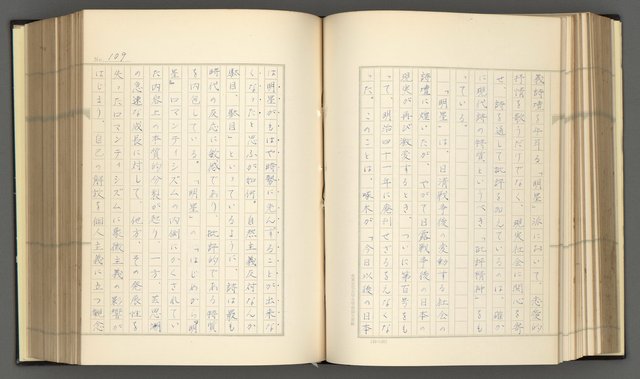 義詩壇を牛耳る「明星」派において、恋愛的
抒情を歌うだけでなく、現実社会に関心を寄
せ、詩を通して批評を加えているのは、確か
に現代詩の特質というべき「批評精神」をも
っている。
「明星」は、日清戦争後の変動する社会の
詩壇に煌いたが、やがて日露戦争後の日本の
現実が再び激変するとき、ついに第百号をも
って、明治四十一年に廃刊せざるをえなくな
った。このことは、啄木が「今日以後の日本
No. 109
は明星がもはや時勢に先んずることが出来な
くなったと思ふが如何。自然主義反対なんか
駄目、駄目」といっているように、詩は最も
時代の反応に敏感であり、批評的である特質
を内包している。「明星」の「はじめから『明
星』ロマンティシズムの内側にかくされてい
た内容上の本質的分裂が起り、一方、芸思潮
の急速な成長に対して、他方、その発展性を
失ったロマンティシズムに象徴主義の影響が
はじまり、自己の解放、個人主義に立つ観念